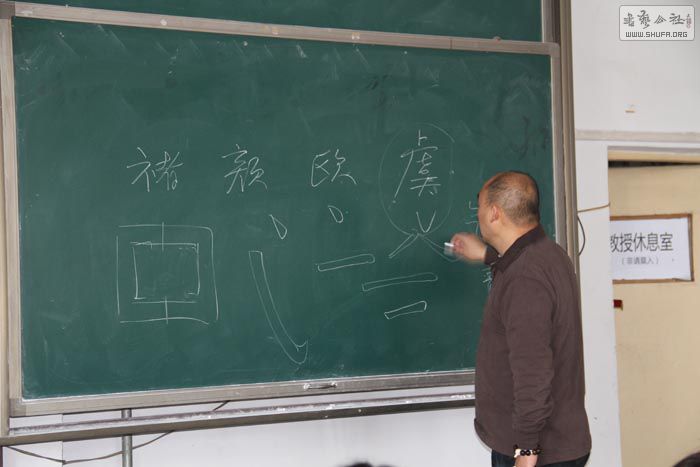 書藝公社
WWW.SHUFA.ORG
褚 颜 欧 虞
教授休息室
（非请莫入）